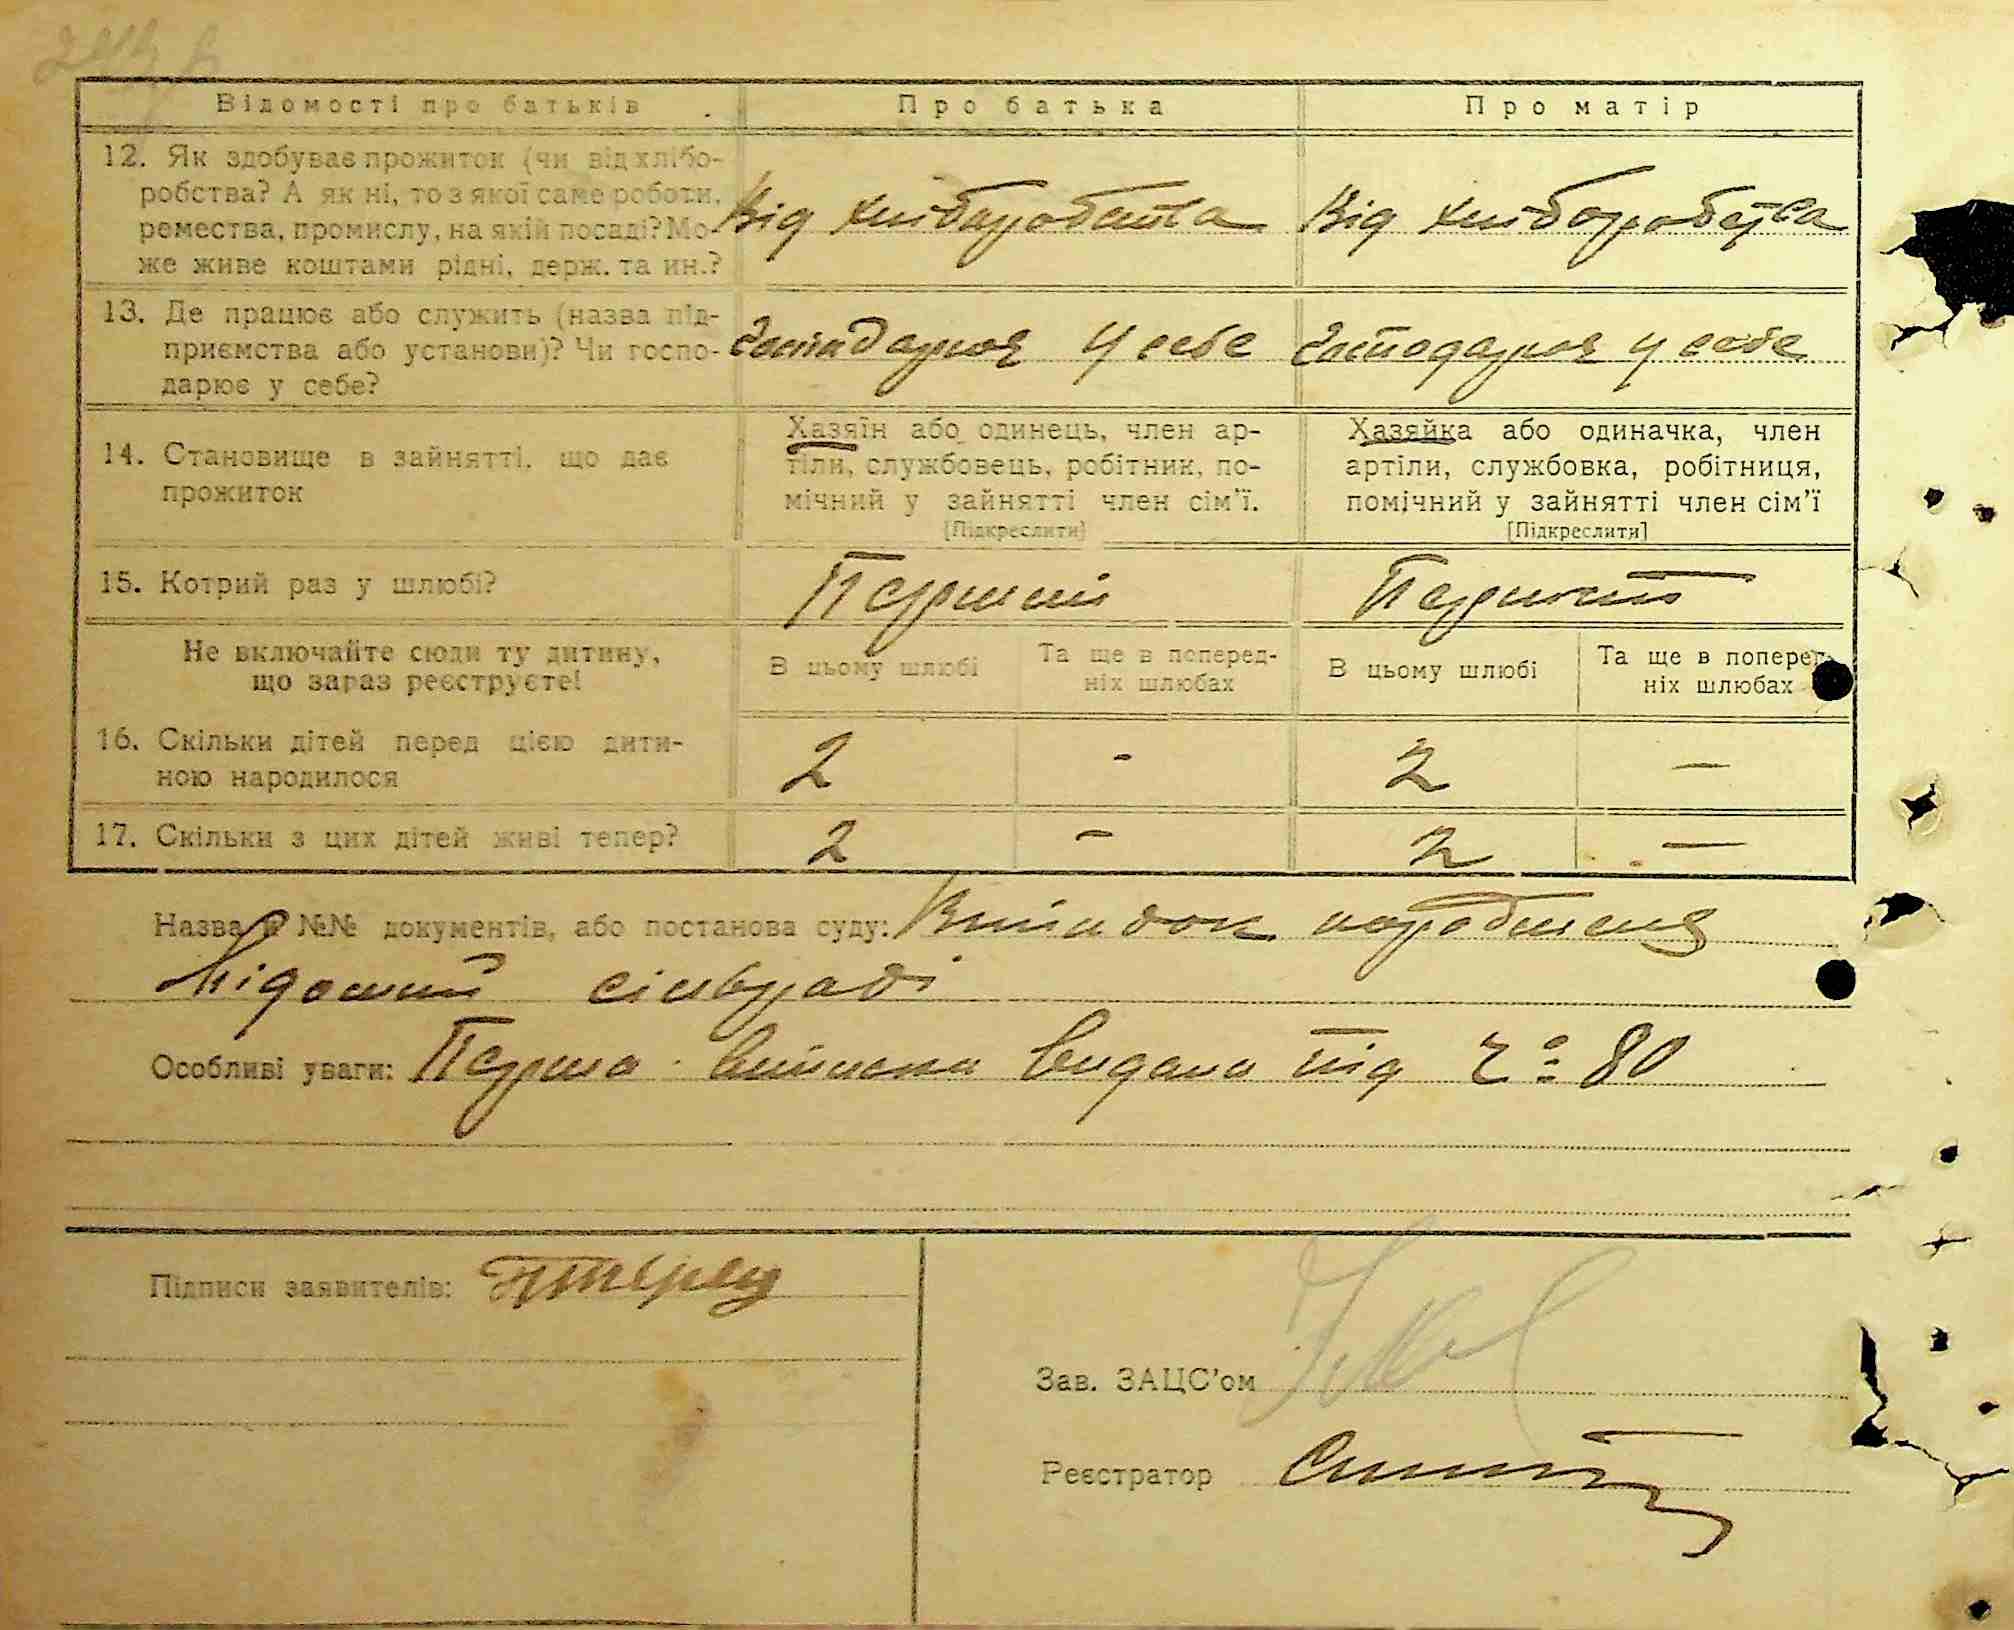 Відомості про батьків Про батька Про матір
12. Як здобуває прожиток (чи від хлібо-
робства? А як ні, то з якої саме роботи,
ремества, промислу, на якій посаді? Мо-
же живе коштами рідні, держ. та ин.?
Від хліборобства Від хліборобства
13. Де працює або служить (назва під-
приємства або установи)? Чи госпо-
дарює у себе?
Господарює у себе Господарює у себе
14. Становище в зайнятті, що дає
прожиток
Хазяїн або одинець, член ар-
тіли, службовець, робітник, по-
мічний у зайнятті член сім'ї.
[Підкреслити]
Хазяйка або одиначка, член
артіли, службовка, робітниця,
помічний у зайнятті член сім'ї
[Підкреслити]
15. Котрий раз у шлюбі? Перший Перший
Не включайте сюди ту дитину,
що зараз реєструєте!
В цьому шлюбі
Та ще в поперед-
ніх шлюбах
В цьому шлюбі
Та ще в поперед-
ніх шлюбах
16. Скільки дітей перед цією дити-
ною народилося
2 - 2 —
17. Скільки з цих дітей живі тепер? 2 - 2 —
Назва й №№ документів, або постанова суду:
Відомий сільраді
Особливі уваги: Перша виписка видана під ч: 80
Підписи заявителів:
Зав. ЗАЦС'ом
Реєстратор